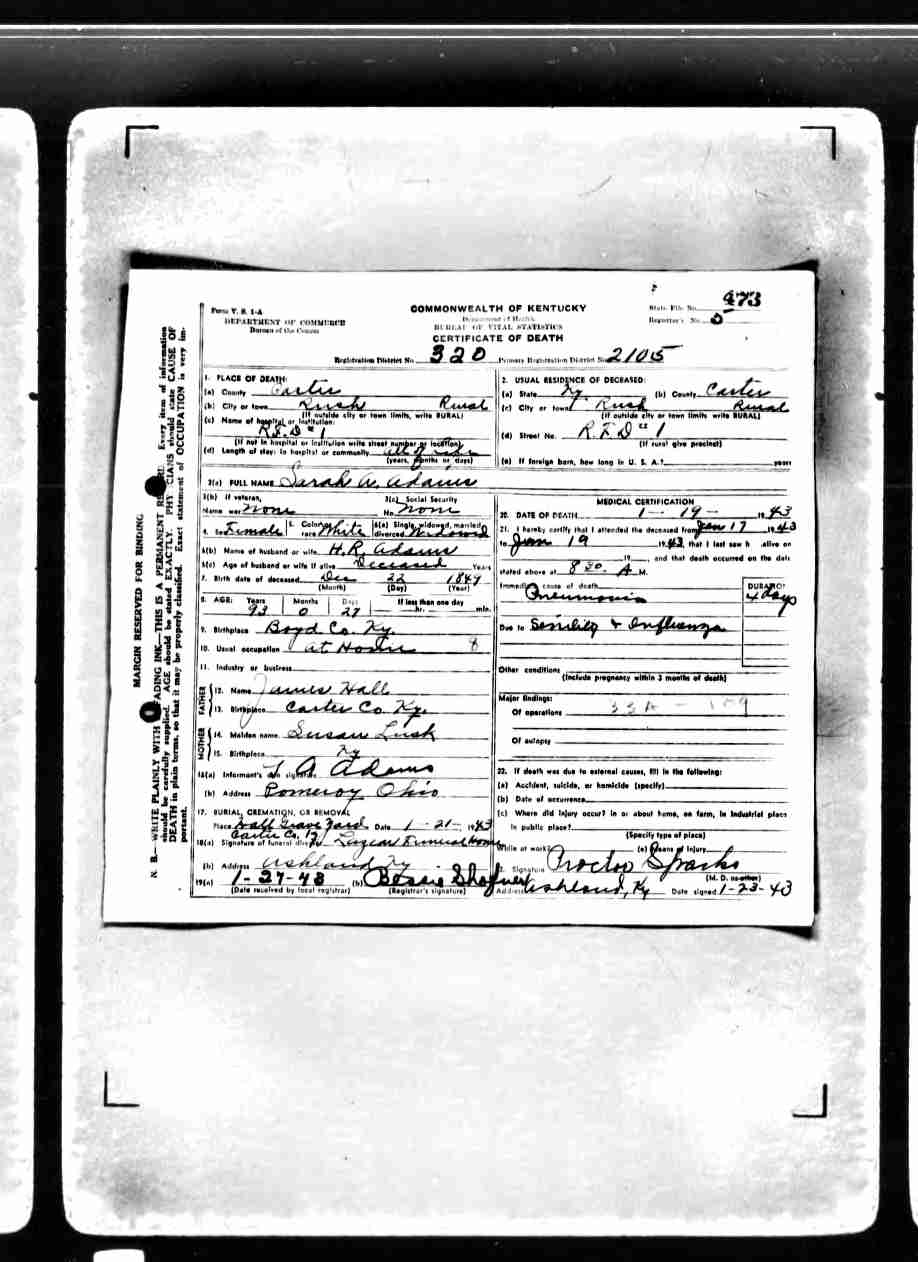 Form V. S. 1-A
DEPARTMENT OF COMMERCE
Bureau of the Census
COMMONWEALTH OF KENTUCKY
Department of Health
BUREAU OF VITAL STATISTICS
CERTIFICATE OF DEATH
State File No. 473
Registrar's No. 0
Registration District No. 320 Primary Registration District No. 2105
MARGIN RESERVED FOR BINDING
N. B.—WRITE PLAINLY WITH FADING INK—THIS IS A PERMANENT Every item of information
should be carefully supplied. AGE should be stated EXACTLY. should state CAUSE OF
DEATH in plain terms, so that it may be properly classified. Exact statement of OCCUPATION is very im-
portant.
1. PLACE OF DEATH:
(a) County Carter
(b) City or town Rush Rural
(If outside city or town limits, write RURAL)
(c) Name of hospital or institution:
R.F.D # 1
(If not in hospital or institution write street number or location)
(d) Length of stay: In hospital or community all of life
(years, months or days)
2. USUAL RESIDENCE OF DECEASED:
(a) State Ky. (b) County Carter
(c) City or town Rush Rural
(If outside city or town limits write RURAL)
(d) Street No. R.F.D # 1
(If rural give precinct)
(e) If foreign born, how long in U. S. A.? years
3(a) FULL NAME Sarah A. Adams
3(b) If veteran,
name war None
3(c) Social Security
No. None
4. Sex Female 5. Color or race White 6(a) Single, widowed, married, divorced Widowed
6(b) Name of husband or wife H.R. Adams
6(c) Age of husband or wife if alive Deceased Years
7. Birth date of deceased Dec 22
(Month) (Day) (Year)
8. AGE: Years Months Days If less than one day
93 0 27 hr. min.
9. Birthplace Boyd Co. Ky.
10. Usual occupation at Home 8
11. Industry or business
FATHER
12. Name James Hall
13. Birthplace Carter Co. Ky.
MOTHER
14. Maiden name Susan Lusk
15. Birthplace Ky
16(a) Informant's signature A Adams
(b) Address Pomeroy Ohio
17. BURIAL, CREMATION, OR REMOVAL
Place Hall Grave Yard Date 1-21-1943
Carter Co. Ky
18(a) Signature of funeral director Lazear Funeral Home
(b) Address Ashland Ky
19(a) 1-27-43 (b) Bessie
(Date received by local registrar) (Registrar's signature)
MEDICAL CERTIFICATION
20. DATE OF DEATH 1-19-1943
21. I hereby certify that I attended the deceased from Jan 17 1943
to Jan 19 1943, that I last saw h alive on
19, and that death occurred on the date
stated above at 8 30 A M.
Immediate cause of death
Pneumonia
DURATION
4 days
Due to Senility & Influenza
Other conditions
(Include pregnancy within 3 months of death)
Major findings:
Of operations 33A -
Of autopsy
22. If death was due to external causes, fill in the following:
(a) Accident, suicide, or homicide (specify)
(b) Date of occurrence
(c) Where did injury occur? in or about home, on farm, in industrial place
in public place?
(Specify type of place)
While at work? (e) Means of injury
Signature Proctor Sparks
(M. D. or other)
Address Ashland, Ky Date signed 1-23-43